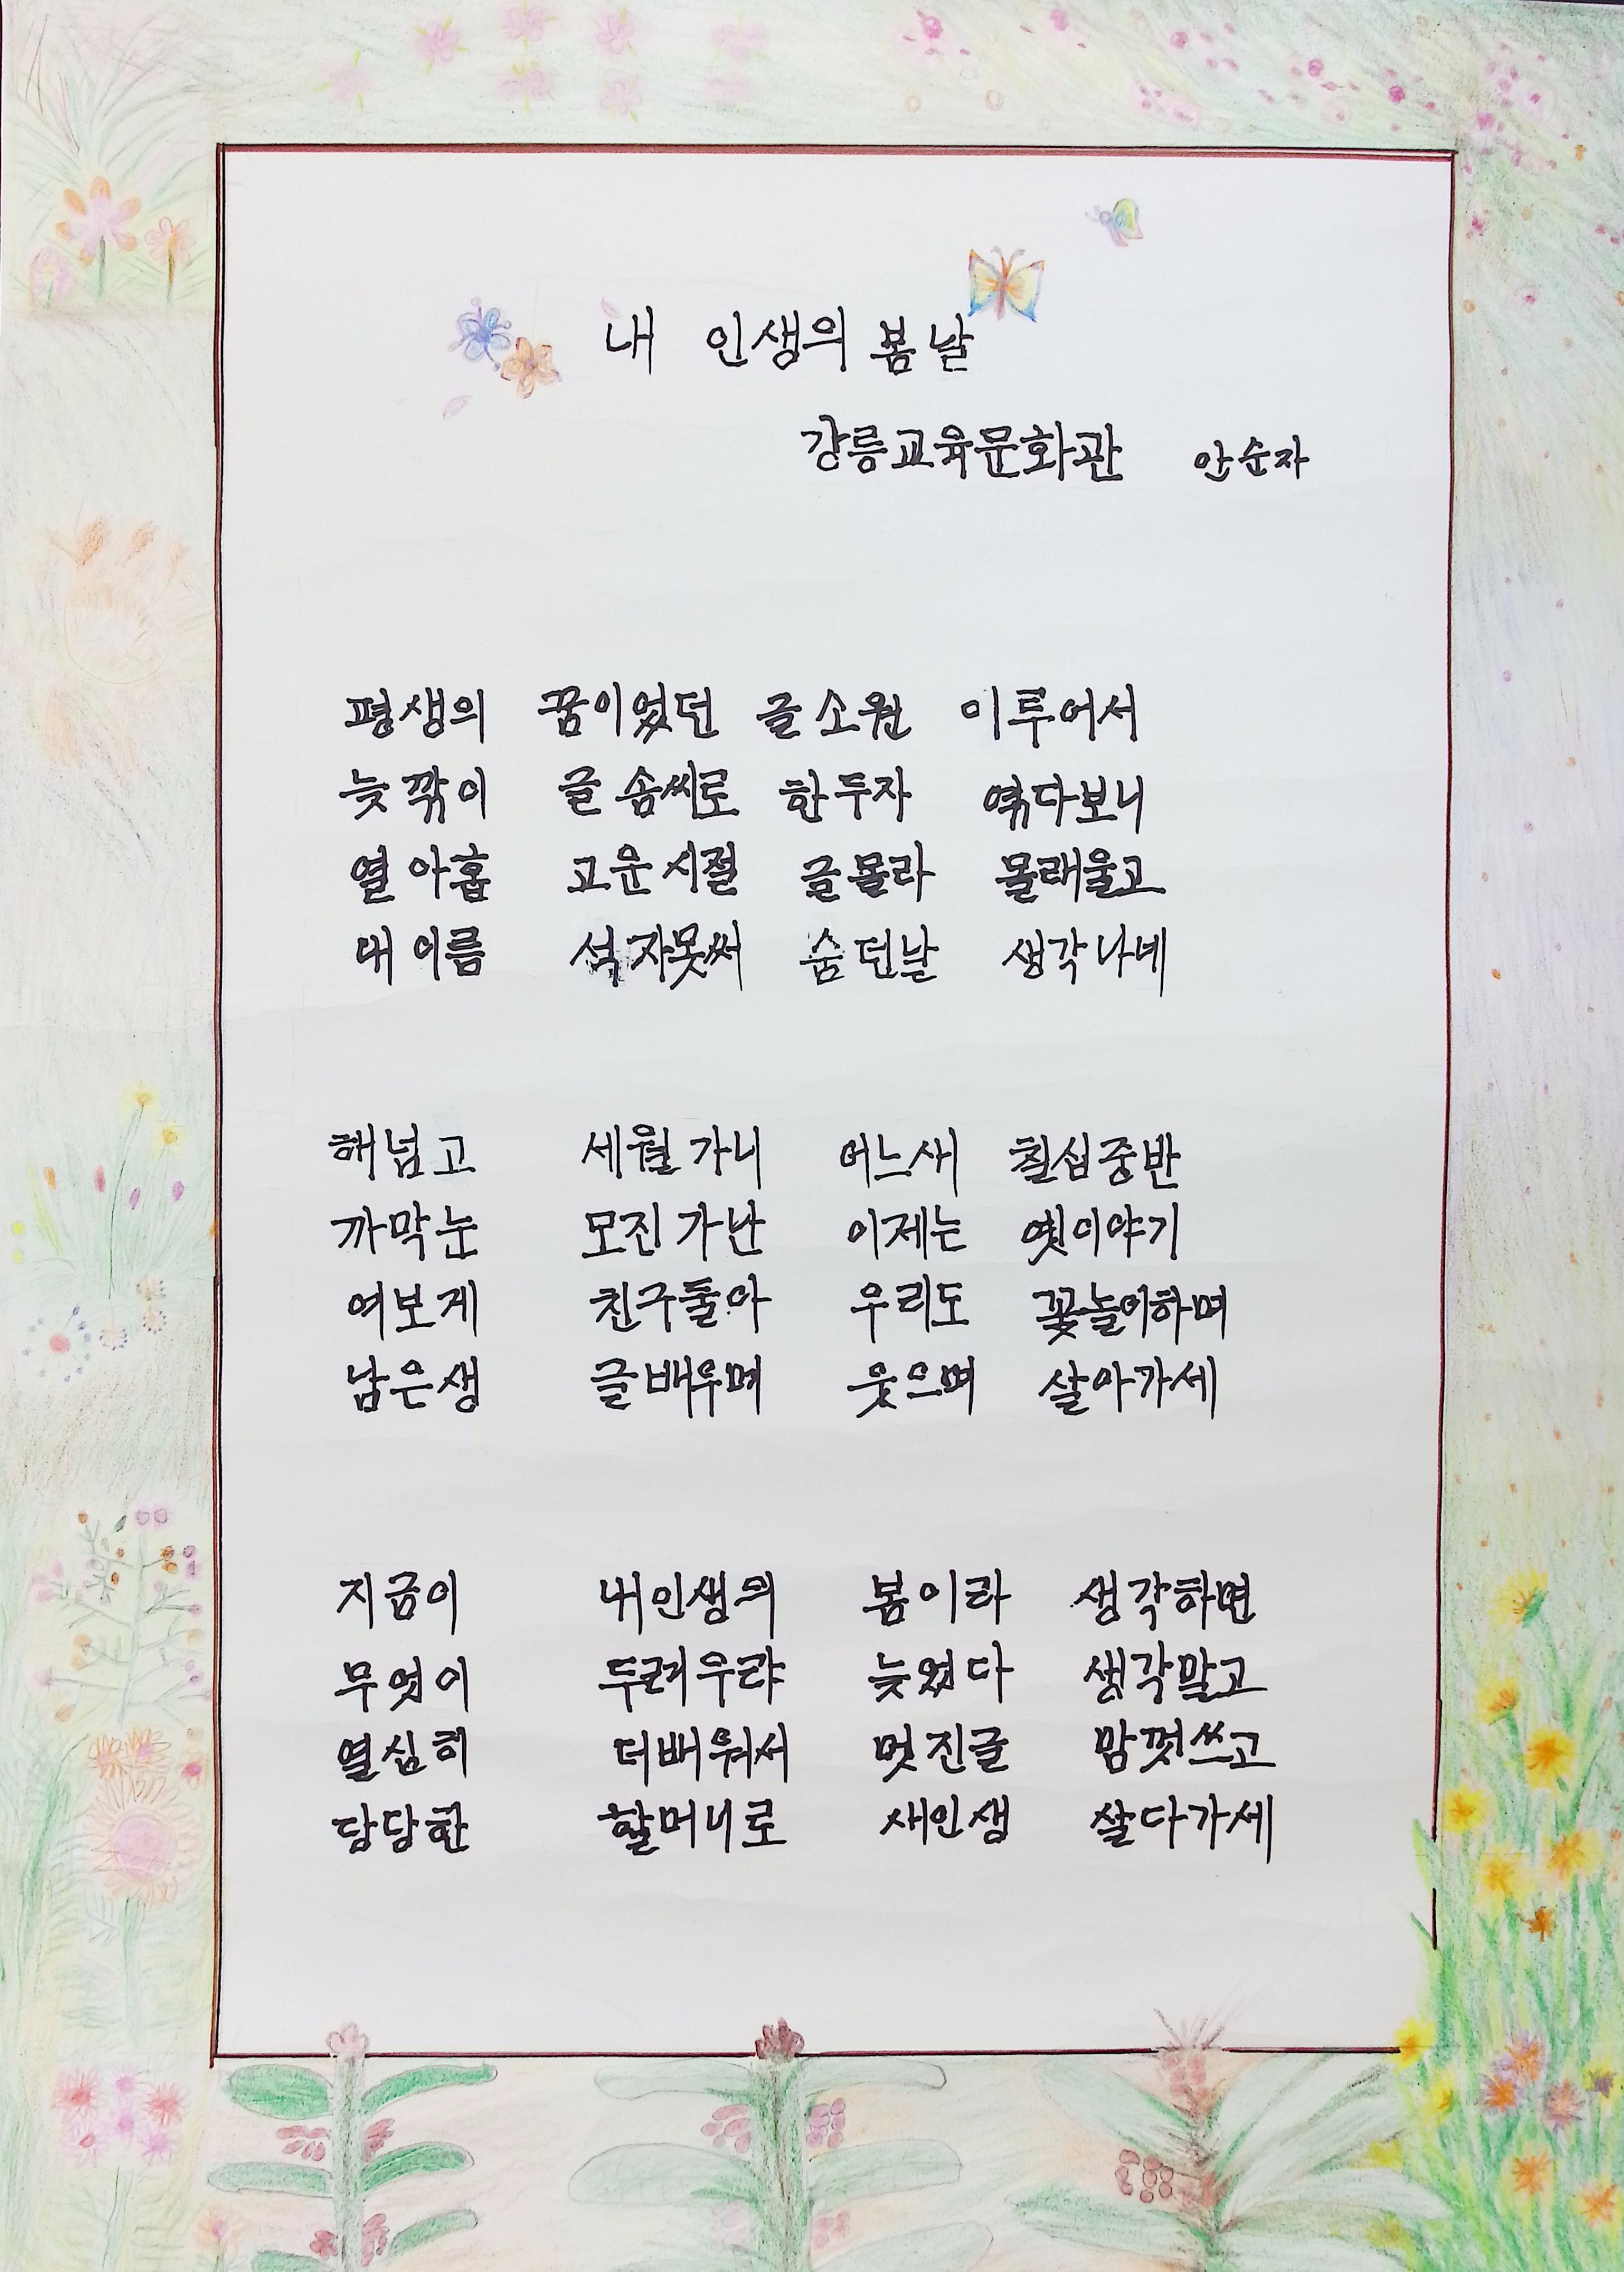 내 인생의 봄날
강릉교육문화관 안순자
평생의 꿈이었던 글소원 이루어서
늦깎이 글솜씨로 한두자 엮다보니
열아홉 고운시절 글몰라 몰래울고
내이름 석자못써 숨던날 생각나네
해넘고 세월가니 어느새 칠십중반
까막눈 모진가난 이제는 옛이야기
여보게 친구들아 우리도 꽃놀이하며
남은생 글배우며 웃으며 살아가세
지금이 내인생의 봄이라 생각하면
무엇이 두려우랴 늦었다 생각말고
열심히 더배워서 멋진글 맘껏쓰고
당당한 할머니로 새인생 살다가세